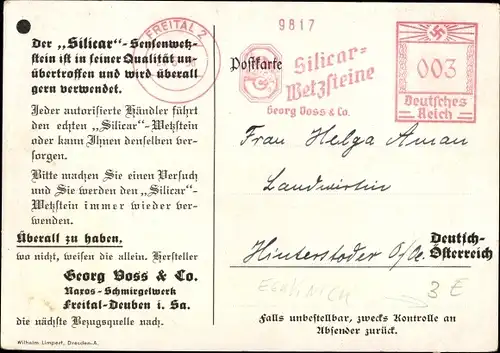 Der „Silicar"-Sensenwetz-
stein ist in seiner Qualität un-
übertroffen und wird überall
gern verwendet.
Jeder autorisierte Händler führt
den echten „Silicar"-Wetzstein
oder kann Ihnen denselben ver-
sorgen.
Bitte machen Sie einen Versuch
und Sie werden den „Silicar"-
Wetzstein immer wieder ver-
wenden.
Überall zu haben,
wo nicht, weisen die allein. Hersteller
Georg Voss & Co.
Naxos-Schmirgelwerk
Freital-Deuben i. Sa.
die nächste Bezugsquelle nach.
Wilhelm Limpert, Dresden-A.
FREITAL 2
9817
Postkarte
Silicar-
Wetzsteine
Georg Voss & Co.
003
Deutsches
Reich
Frau Helga Aman
Landwirtin
Hinterstoder O/Oe.
Deutsch-
Österreich
3 €
Falls unbestellbar, zwecks Kontrolle an
Absender zurück.